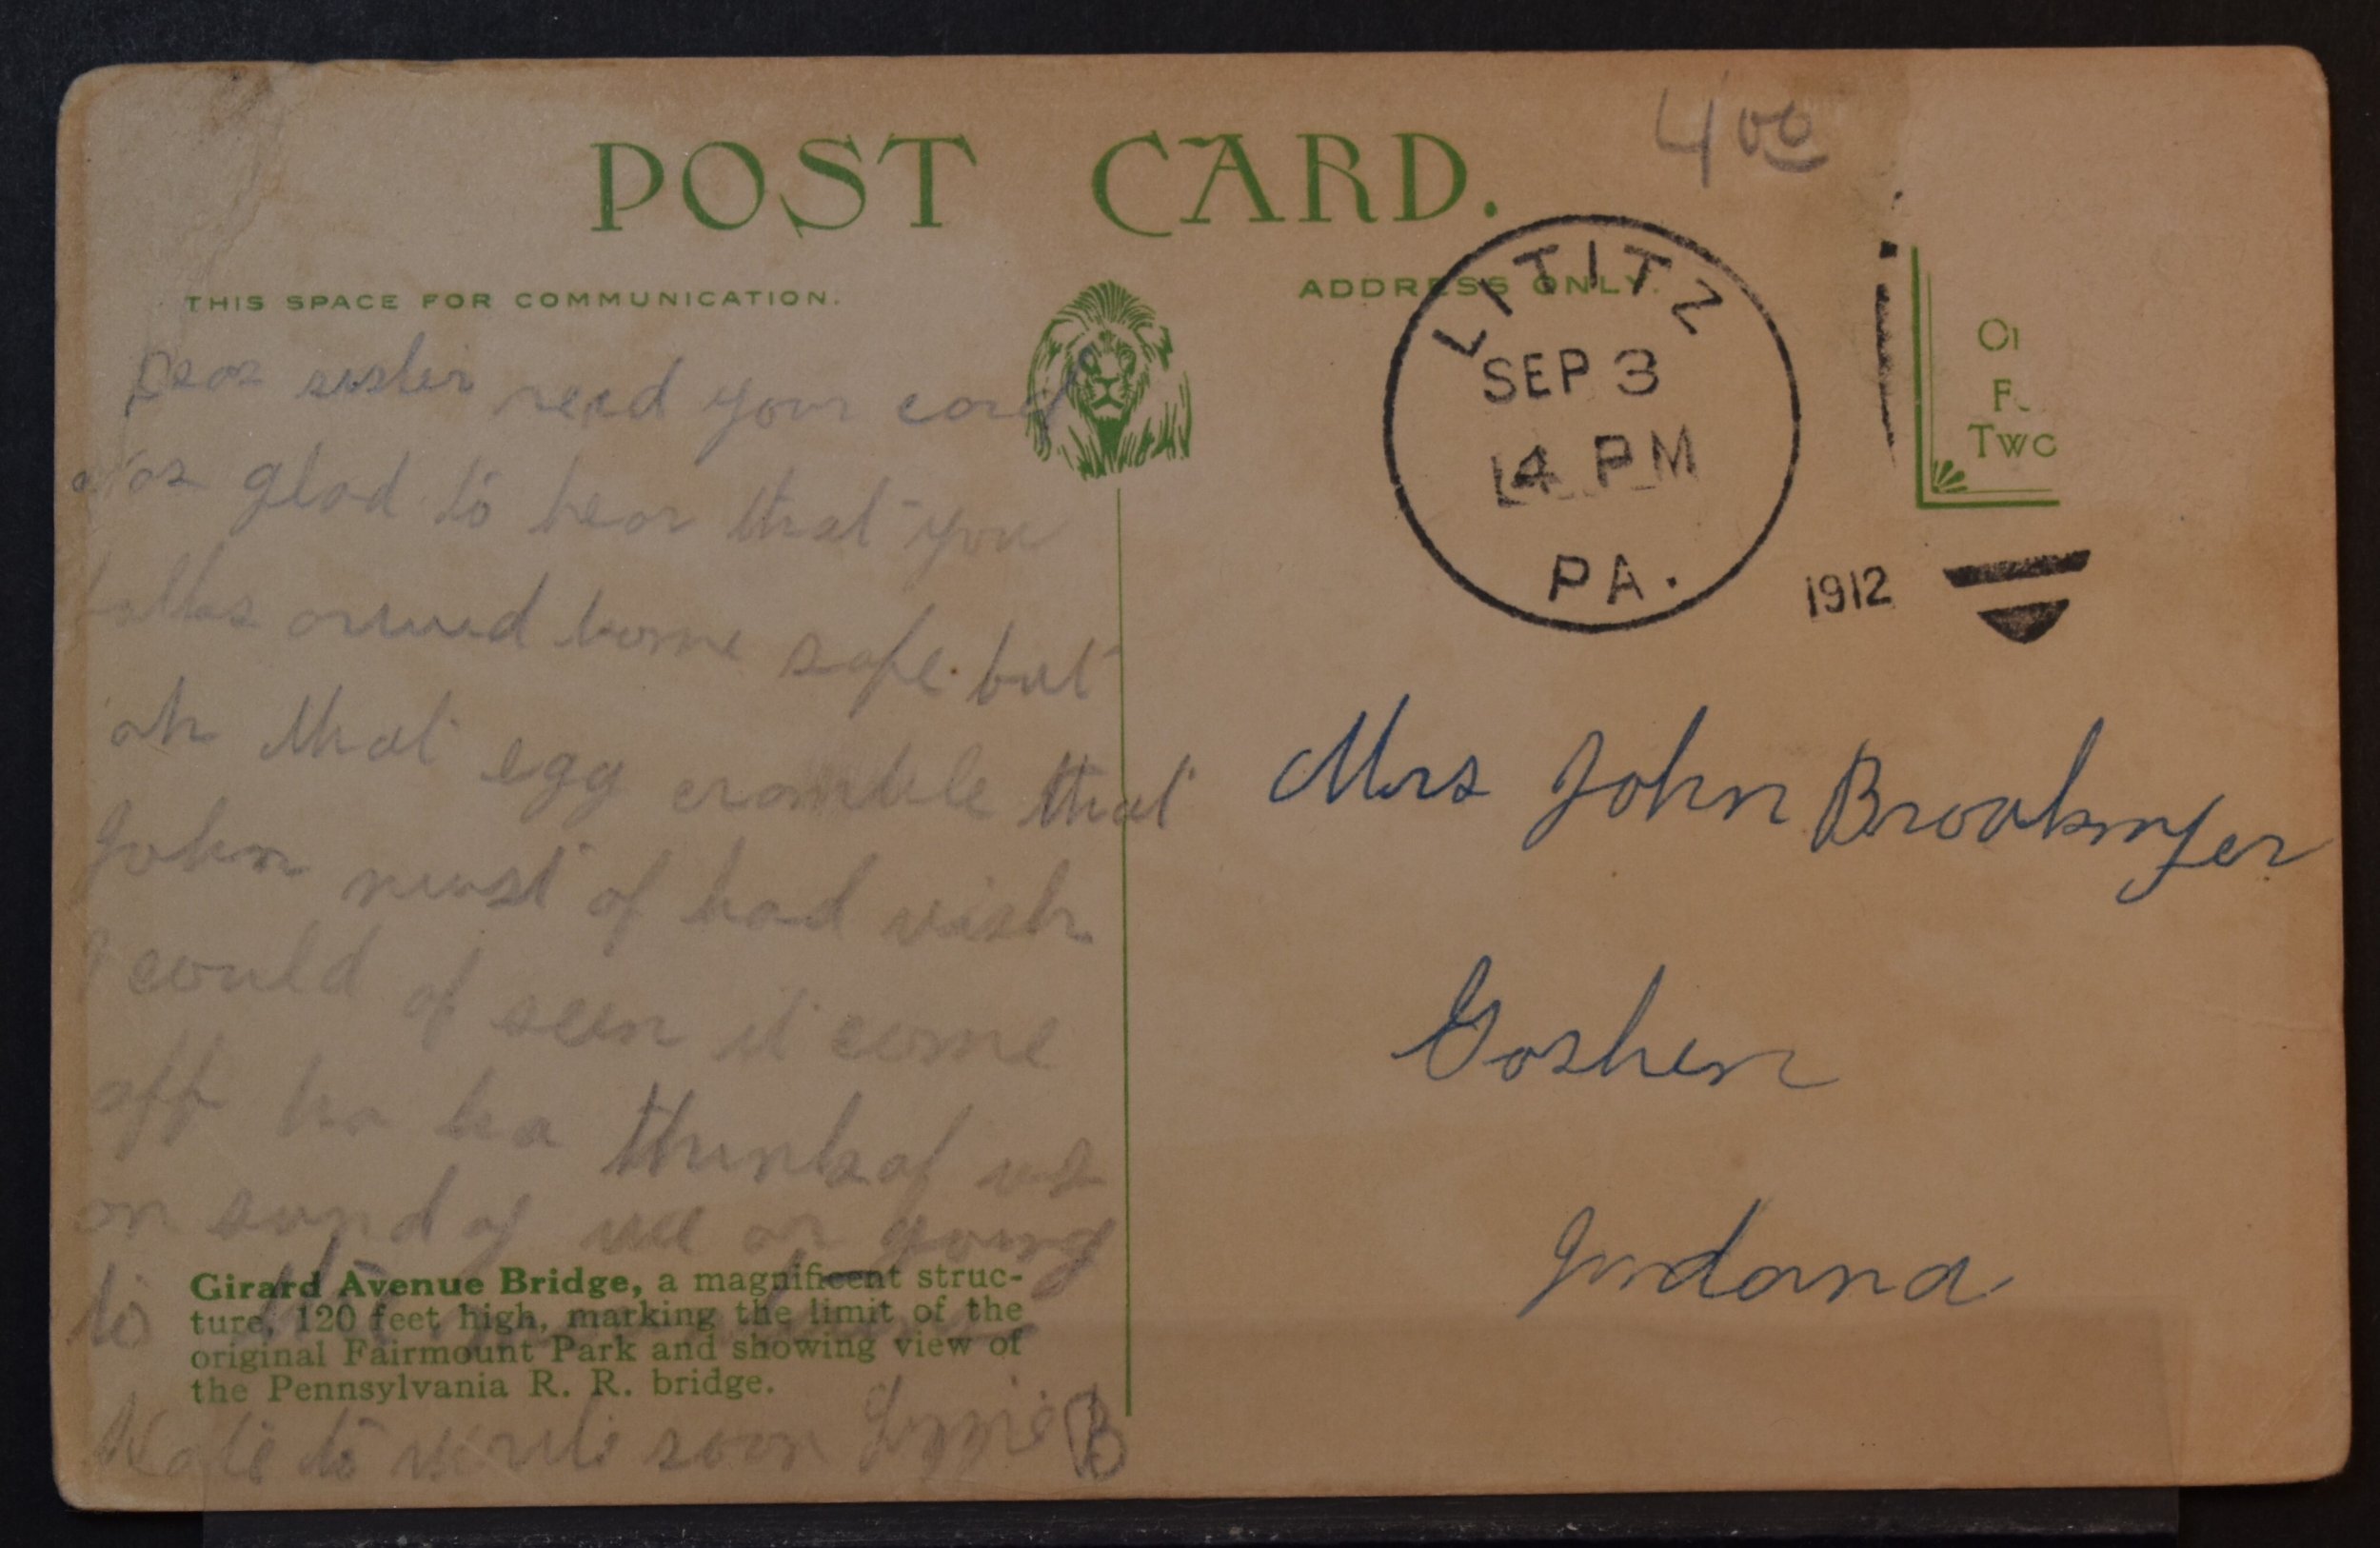 4 00
POST CARD.
THIS SPACE FOR COMMUNICATION.
ADDRESS ONLY.
LITITZ
SEP 3
4 PM
PA.
1912
Two
Dear sister recd your card
was glad to hear that you
arrived home safe. but
oh that egg cramble that
John must of had wish
I could of seen it come
off ha ha think of us
on sund of we on going
to
Kate to write soon Lizzie B
Girard Avenue Bridge, a magnificent struc-
ture, 120 feet high, marking the limit of the
original Fairmount Park and showing view of
the Pennsylvania R. R. bridge.
Mrs John Brookmyer
Goshen
Indana